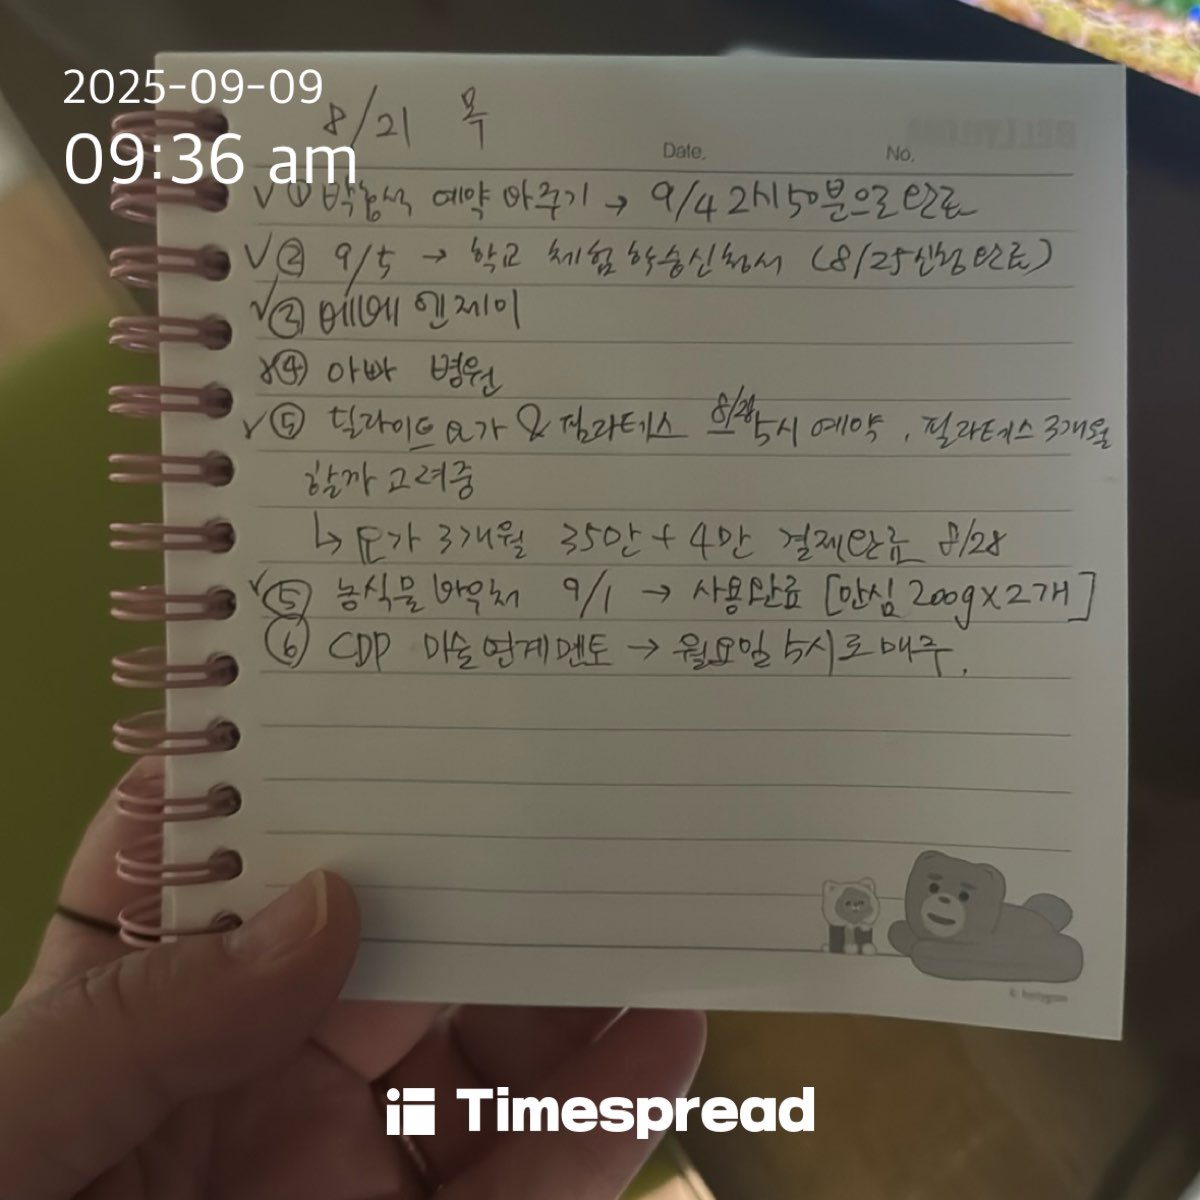 2025-09-09
09:36 am
8/21 목
Date.
No.
✓ ① 예약 바꾸기 → 9/4 2시 50분으로 완료
✓ ② 9/5 → 학교 체험학습신청서 (8/25 신청완료)
✓ ③ 엔제이
✓ ④ 아빠 병원
✓ ⑤ 딜라이트 요가 & 필라테스 8/28 5시 예약, 필라테스 3개월
할까 고려중
↳ 요가 3개월 35만 + 4만 결제완료 8/28
✓ ⑤ 농식물 바우처 9/1 → 사용완료 [안심 200g x 2개]
⑥ CDP 미술연계멘토 → 월요일 5시로 매주.
Timespread